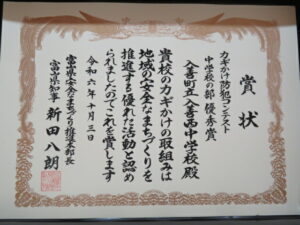 賞状
カギかけ防犯コンテスト
中学校の部 優秀賞
入善町立入善西中学校殿
貴校のカギかけの取組みは
地域の安全なまちづくりを
推進する優れた活動と認め
られましたのでこれを賞します
令和六年十月三日
富山県安全なまちづくり推進本部長
富山県知事 新田八朗